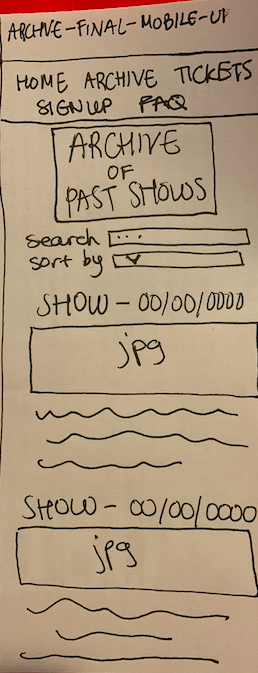 ARCHIVE-FINAL-MOBILE-UI
HOME ARCHIVE TICKETS
SIGNUP FAQ
ARCHIVE
OF
PAST SHOWS
search ...
sort by
SHOW - 00/00/0000
jpg
SHOW - 00/00/0000
jpg